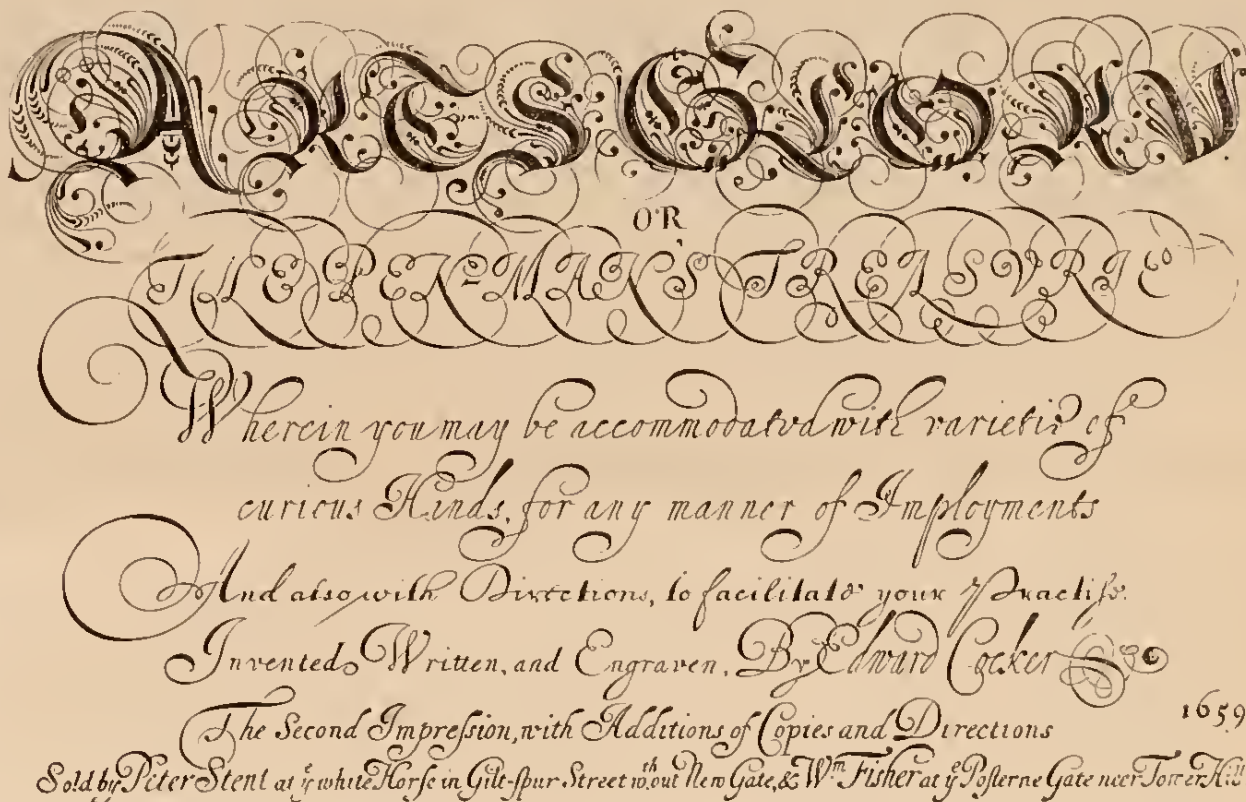 ARTS GLORY
OR
THE PEN-MAN'S TREASVRIE
Wherein you may be accommodated with varietie of
curious Hands, for any manner of Imployments
And also with Directions, to facilitate your Practise.
Invented, Written, and Engraven, By Edward Cocker
1659
The Second Impreſsion, with Additions of Copies and Directions
Sold by Peter Stent at yᵉ white Horſe in Gilt-ſpur Street wᵗʰout New Gate, & Wᵐ Fisher at yᵉ Poſterne Gate neer Tower Hill